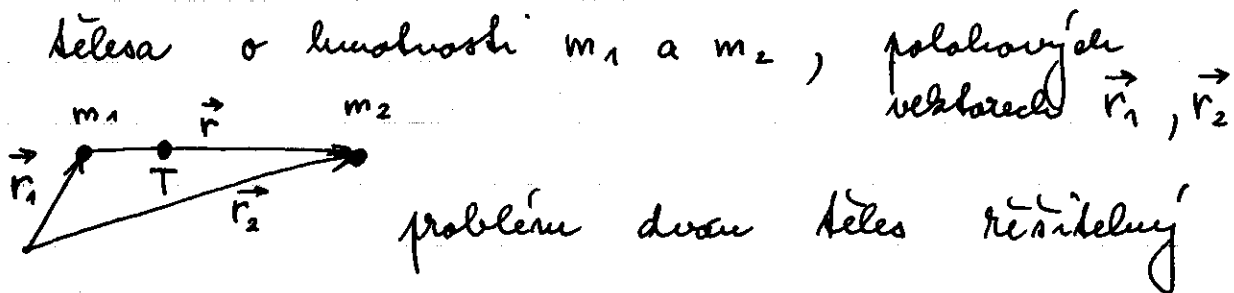 tělesa o hmotnosti m₁ a m₂, polohových
vektorech r⃗₁, r⃗₂
m₁ r⃗ m₂
r⃗₁ T r⃗₂
problém dvou těles řešitelný